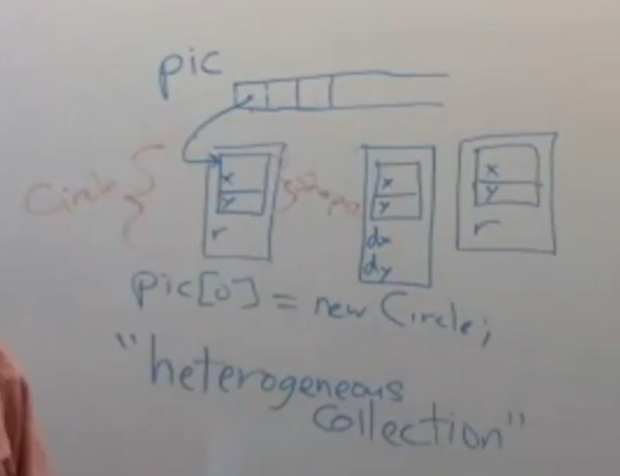 pic
x
y
r
Circle
Shape
x
y
dx
dy
x
y
r
pic[0] = new Circle;
"heterogeneous
collection"